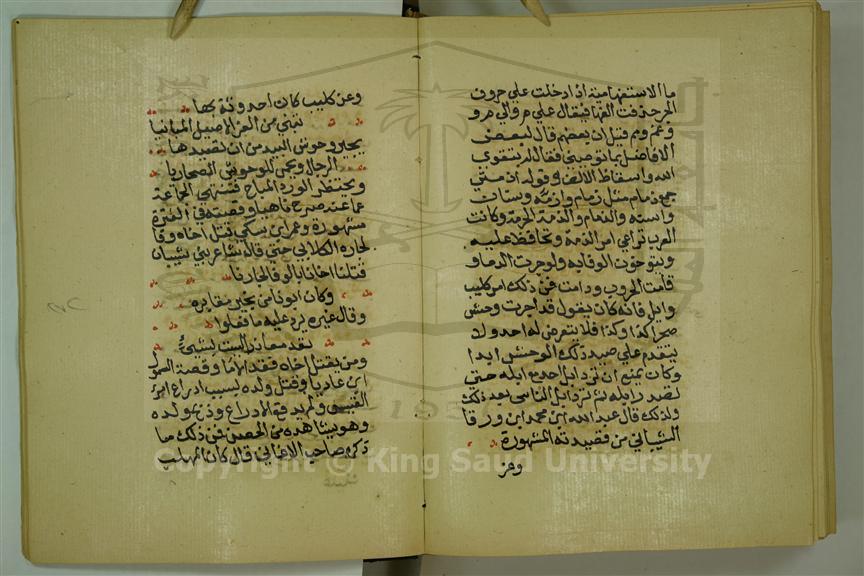 ما الاستفهامية اذا دخلت علي حروف
الجر حذفت الفها فيقال علي م والي م و
وعم وبم قيل ان بعضهم قال لبعض
الافاضل بما توصني فقال له بتقوي
الله واسقاط الالف وقوله اذ متي
جمع ذمام مثل زمام وازمه وسنان
واسنه والذمام والذمة الحرمة وكانت
العرب تراعي امر الذمة وتحافظ عليه
ويتوخون الوفابه ولو جرت الدما و
قامت الحروب ودامت فمن ذلك امر كليب
وايل فانه كان يقول قد اجرت وحش
صحرا كذا وكذا فلا يتعرض له احد ولا
يتقدم علي صيد ذلك الوحش ابدا
وكان يمنع ان ترد ابل احد مع ابله حتي
تصدر ابله ثم ترد ابل الناس بعد ذلك
ولذلك قال عبد الله ابن محمد ابن ورقا
الشيباني من قصيدته المشهورة
وعز
وعن كليب كان احدوثة بها
تبني من العز الاصيل المبانيا
يجير وحوش البيد من ان تصيدها
الرجال ويحمي الوحوش الصحاريا
ويحتظر الورد المباح فتنتهي الجماعة
عما عند صرح ناهيا وقصته في الشهرة
مشهورة وعمر ابن سلمي قتل اخاه وفا
لجاره الكلابي حتي قال شاعر بني شيبان
قتلنا اخانا بالوفا لجارنا
وكان ابونا من يجير مقابره
وقال غيره يرد عليه ما فعلوا
تعد معاذرا ليست بشيئ
ومن يقتل اخاه فقد الاما وقصة السمول
ابن عاديا وقتل ولده بسبب ادراع امرئ
القيس ولم يدفع الادراع وذبح ولده
وهو يشاهده من الحصن فمن ذلك ما
ذكره صاحب الاغاني قال كان المهلب
Copyright © King Saud University